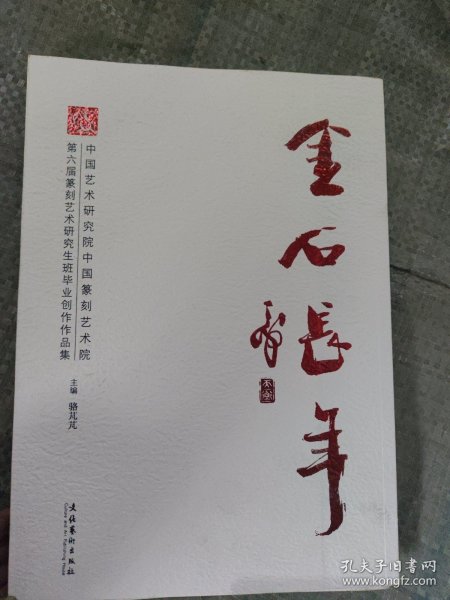 金石長年
中国艺术研究院中国篆刻艺术院
第六届篆刻艺术研究生班毕业创作作品集
主编 骆芃芃
文化藝術出版社
Culture and Art Publishing House
孔夫子旧书网
www.kongfz.com